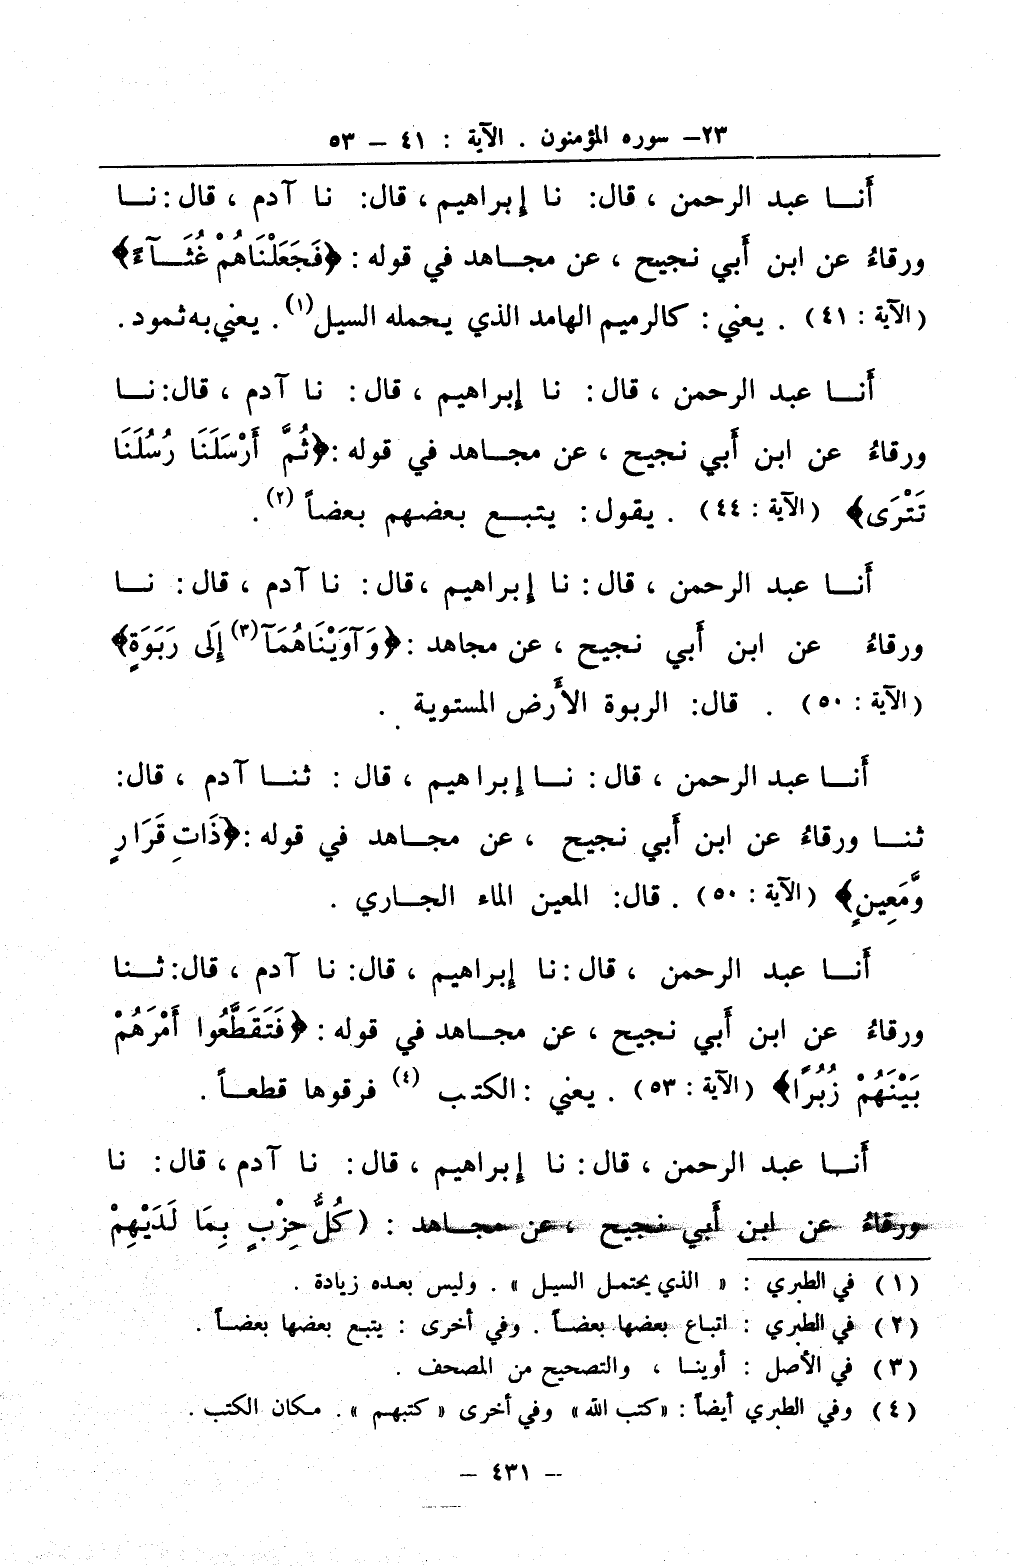 ٢٣- سوره المؤمنون . الآية : ٤١ - ٥٣
أنا عبد الرحمن ، قال: نا إبراهيم ، قال: نا آدم ، قال : نا
ورقاءُ عن ابن أبي نجيح ، عن مجاهد في قوله : ﴿فَجَعَلْنَاهُمْ غُثَآءً﴾
(الآية : ٤١) . يعني : كالرميم الهامد الذي يحمله السيل(١) . يعني به ثمود .
أنا عبد الرحمن ، قال : نا إبراهيم ، قال : نا آدم ، قال: نا
ورقاءُ عن ابن أبي نجيح ، عن مجاهد في قوله :﴿ثُمَّ أَرْسَلَنَا رُسُلَنَا
تَتْرَى﴾ (الآية : ٤٤) . يقول : يتبع بعضهم بعضاً (٢) .
أنا عبد الرحمن ، قال : نا إبراهيم ،قال : نا آدم ، قال : نا
ورقاءُ عن ابن أبي نجيح ، عن مجاهد :﴿وَآوَيْنَاهُمَآ(٣) إِلَى رَبَوَةٍ﴾
(الآية : ٥٠) . قال: الربوة الأَرض المستوية .
أنا عبد الرحمن ، قال : نا إبراهيم ، قال : ثنا آدم ، قال:
ثنا ورقاءُ عن ابن أبي نجيح ، عن مجاهد في قوله :﴿ذَاتِ قَرَارٍ
وَّمَعِينٍ﴾ (الآية : ٥٠) . قال: المعين الماء الجاري .
أنا عبد الرحمن ، قال :نا إبراهيم ، قال: نا آدم ، قال: ثنا
ورقاءُ عن ابن أبي نجيح ، عن مجاهد في قوله : ﴿فَتَقَطَّعُوا أَمْرَهُمْ
بَيْنَهُمْ زُبُرًا﴾ (الآية : ٥٣) . يعني :الكتب (٤) فرقوها قطعاً .
أنا عبد الرحمن ، قال : نا إبراهيم ، قال : نا آدم ، قال : نا
ورقاءُ عن ابن أبي نجيح ،عن مجاهد : (كُلُّ حِزْبٍ بِمَا لَدَيْهِمْ
(١) في الطبري : « الذي يحتمل السيل » . وليس بعده زيادة .
(٢) في الطبري : اتباع بعضها بعضاً . وفي أخرى : يتبع بعضها بعضاً .
(٣) في الأصل : أوينا ، والتصحيح من المصحف .
(٤) وفي الطبري أيضاً : «كتب الله» وفي أخرى « كتبهم » . مكان الكتب .
- ٤٣١ -